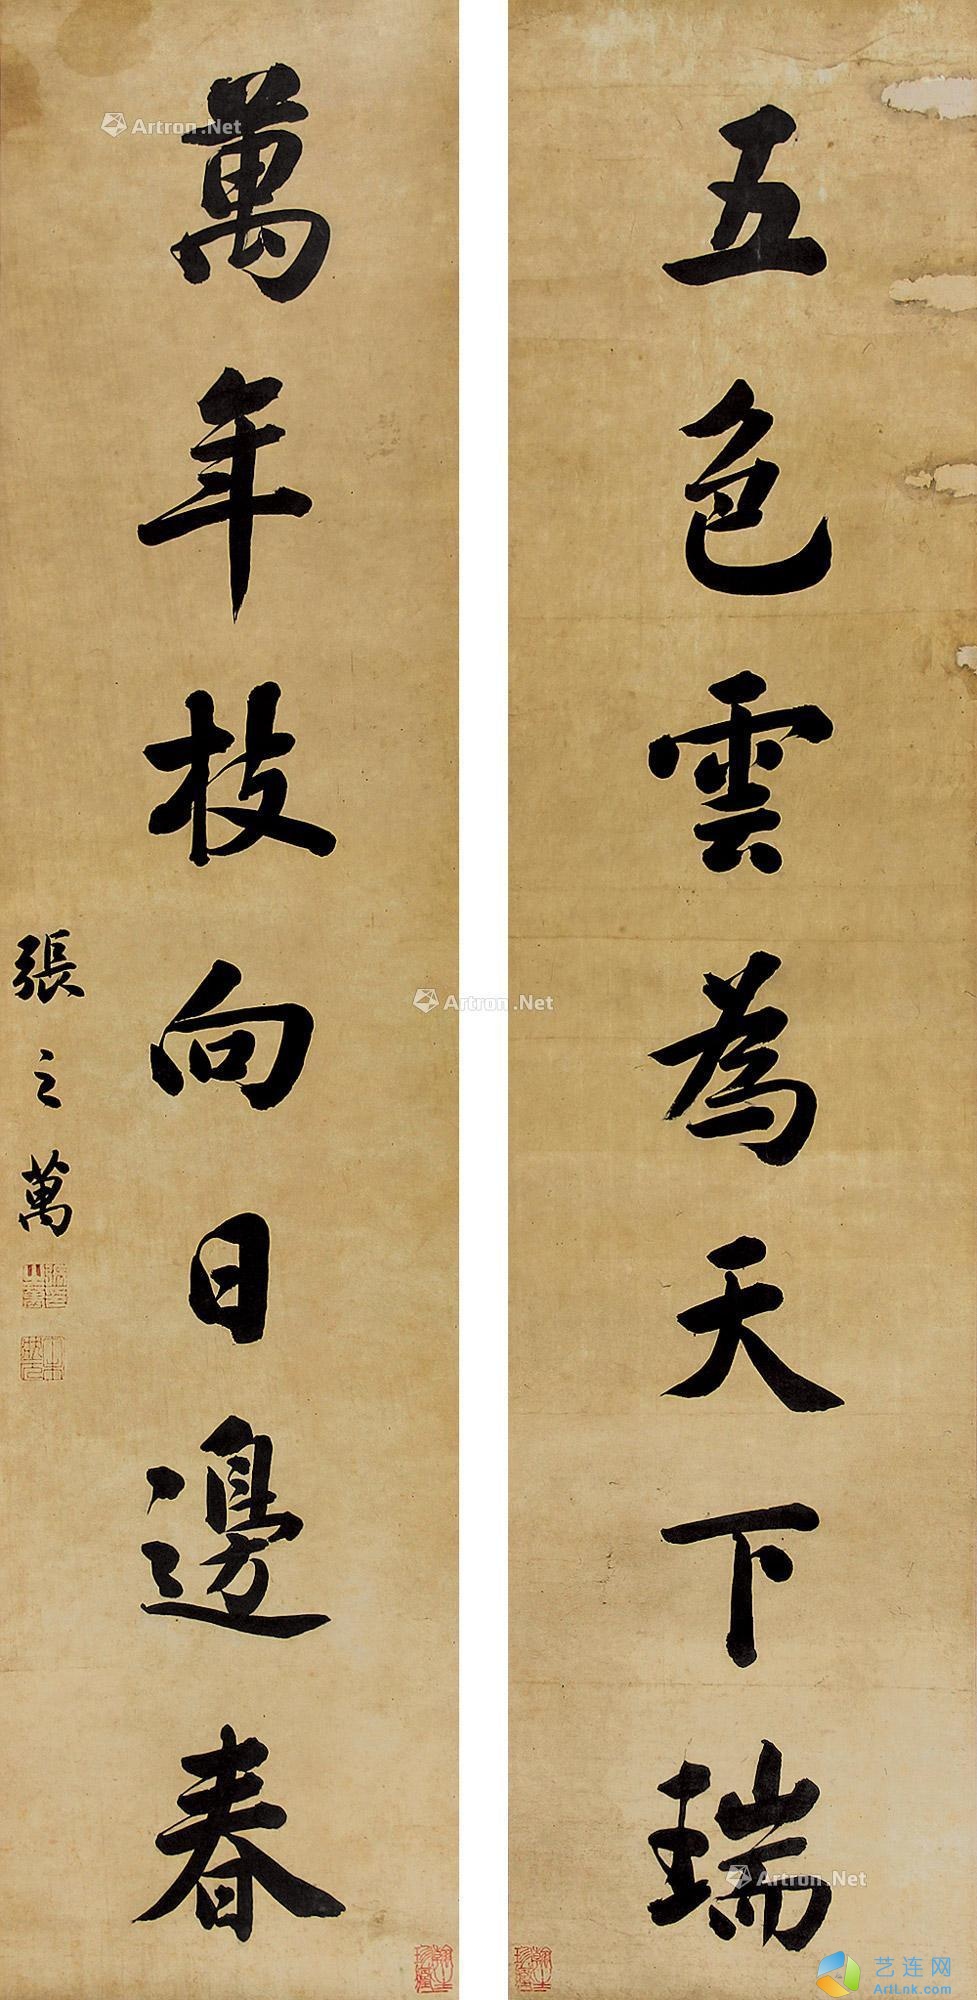 五色雲為天下瑞
萬年枝向日邊春
張之萬
Artron.Net
Artron.Net
Artron.Net
艺连网
ArtLnk.com